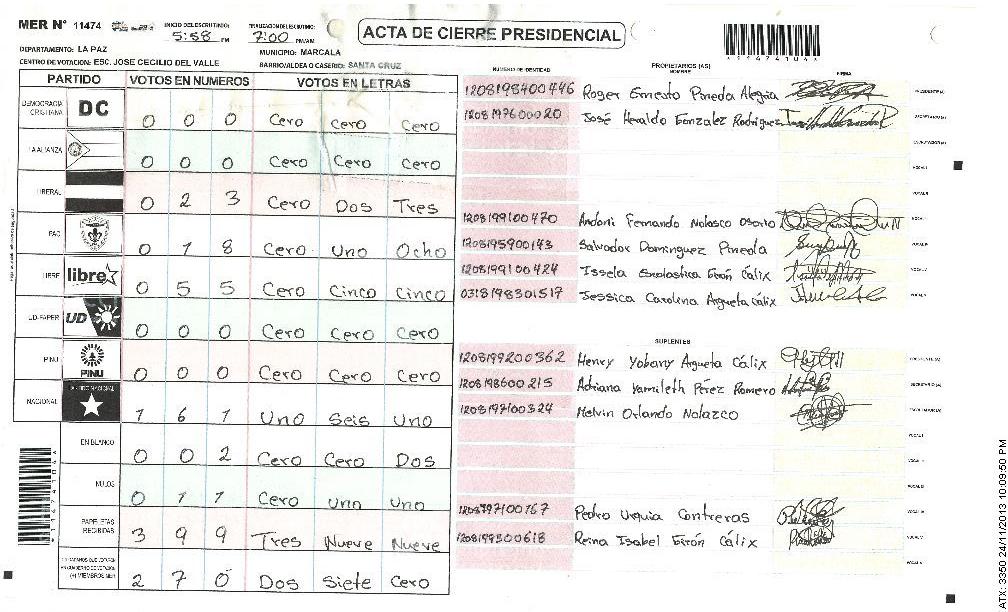 MER Nº 11474
INICIO DEL ESCRUTINIO: 5:58 PM
FINALIZACION DEL ESCRUTINIO: 7:00 PM/AM
ACTA DE CIERRE PRESIDENCIAL
DEPARTAMENTO: LA PAZ
MUNICIPIO: MARCALA
CENTRO DE VOTACION: ESC. JOSE CECILIO DEL VALLE
BARRIO/ALDEA O CASERIO: SANTA CRUZ
PARTIDO VOTOS EN NUMEROS VOTOS EN LETRAS
DEMOCRACIA CRISTIANA DC 0 0 0 Cero Cero Cero
LA ALIANZA 0 0 0 Cero Cero Cero
LIBERAL 0 2 3 Cero Dos Tres
PAC 0 1 8 Cero Uno Ocho
LIBRE libre 0 5 5 Cero Cinco Cinco
UD-FAPER UD 0 0 0 Cero Cero Cero
PINU PINU 0 0 0 Cero Cero Cero
NACIONAL 1 6 1 Uno Seis Uno
EN BLANCO 0 0 2 Cero Cero Dos
NULOS 0 1 1 Cero Uno Uno
PAPELETAS RECIBIDAS 3 9 9 Tres Nueve Nueve
2 7 0 Dos Siete Cero
NUMERO DE IDENTIDAD PROPIETARIOS (AS) NOMBRE FIRMA
*11474104*
1208198400446 Roger Ernesto Pineda Alegria PRESIDENTE (A)
1208197600020 José Heraldo Gonzalez Rodriguez SECRETARIO (A)
ESCRUTADOR (A)
VOCAL I
VOCAL II
1208199100470 Andoni Fernando Nolasco Osorto
1208195900143 Salvador Dominguez Pineda
1208199100424 Issela Escolastica Girón Cálix
0318198301517 Jessica Carolina Argueta Cálix
SUPLENTES
1208199200362 Henry Yobany Argueta Cálix PRESIDENTE (A)
1208198600215 Adriana Yamileth Pérez Romero SECRETARIO (A)
1208197100324 Melvin Orlando Nolazco ESCRUTADOR (A)
VOCAL I
1208197100167 Pedro Urquia Contreras
1208199300618 Reina Isabel Girón Cálix
*11474104*
ATX: 3350 24/11/2013 10:09:50 PM